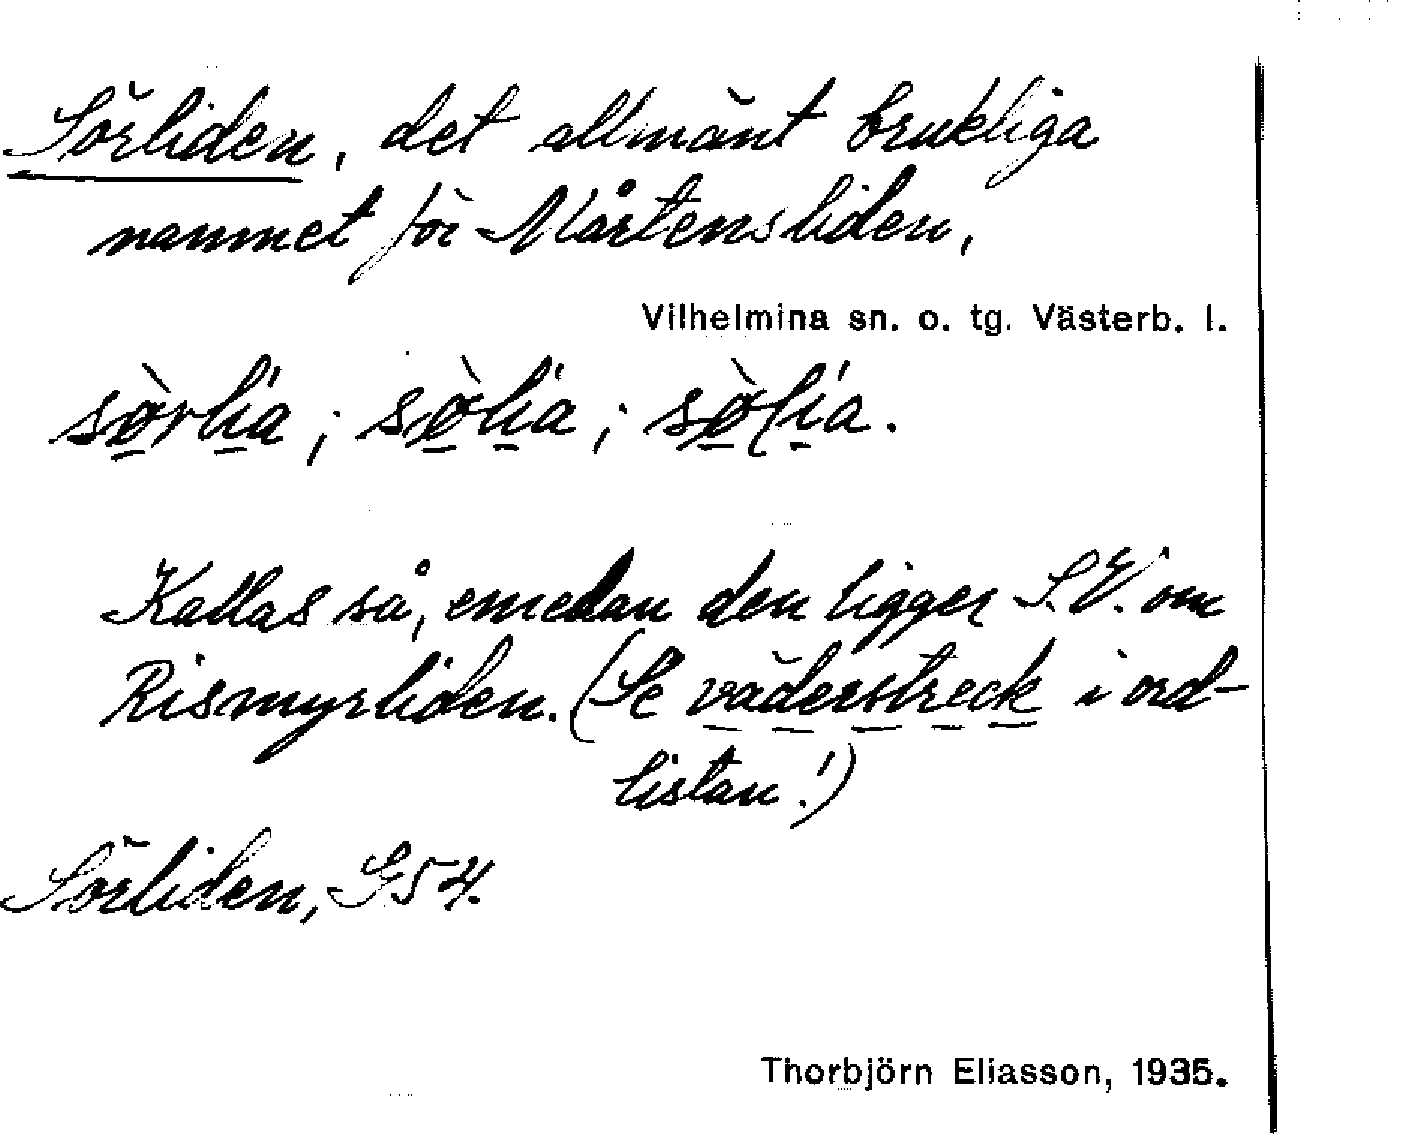 Sörliden, det allmänt brukliga
namnet för Mårtensliden,
Vilhelmina sn. o. tg. Västerb. l.
sø̀rlía; sø̀lía; sø̀lía.
Kallas så, emedan den ligger S.V. om
Rismyrliden. (Se väderstreck i ord-
listan!)
Sörliden, G54.
Thorbjörn Eliasson, 1935.